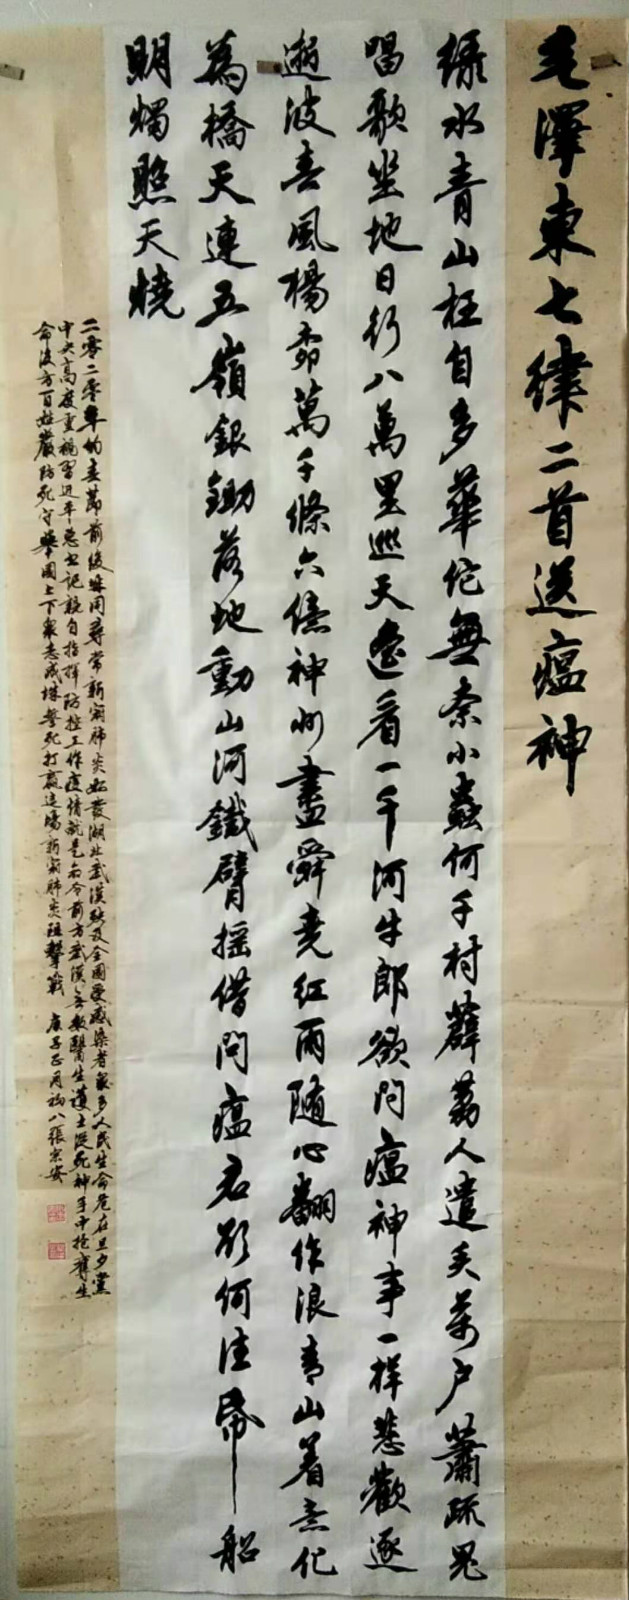 毛澤東七律二首送瘟神
綠水青山枉自多華佗無奈小蟲何千村薜荔人遺矢萬户蕭疏鬼
唱歌坐地日行八萬里巡天遥看一千河牛郎欲問瘟神事一樣悲歡逐
逝波春風楊柳萬千條六億神州盡舜堯紅雨随心翻作浪青山着意化
為橋天連五嶺銀鋤落地動山河鐵臂摇借問瘟君欲何往帋船
明燭照天燒
二零二零年的春節前後殊同尋常新冠肺炎始發湖北武漢殃及全國受感染者衆多人民生命危在旦夕黨
中央高度重視習近平总書記親自指揮防控工作疫情就是命令前方武漢無數醫生護士從死神手中搶奪生
命後方百姓嚴防死守舉國上下衆志成城誓死打贏這場新冠肺炎阻擊戰 庚子正月初八張宗安